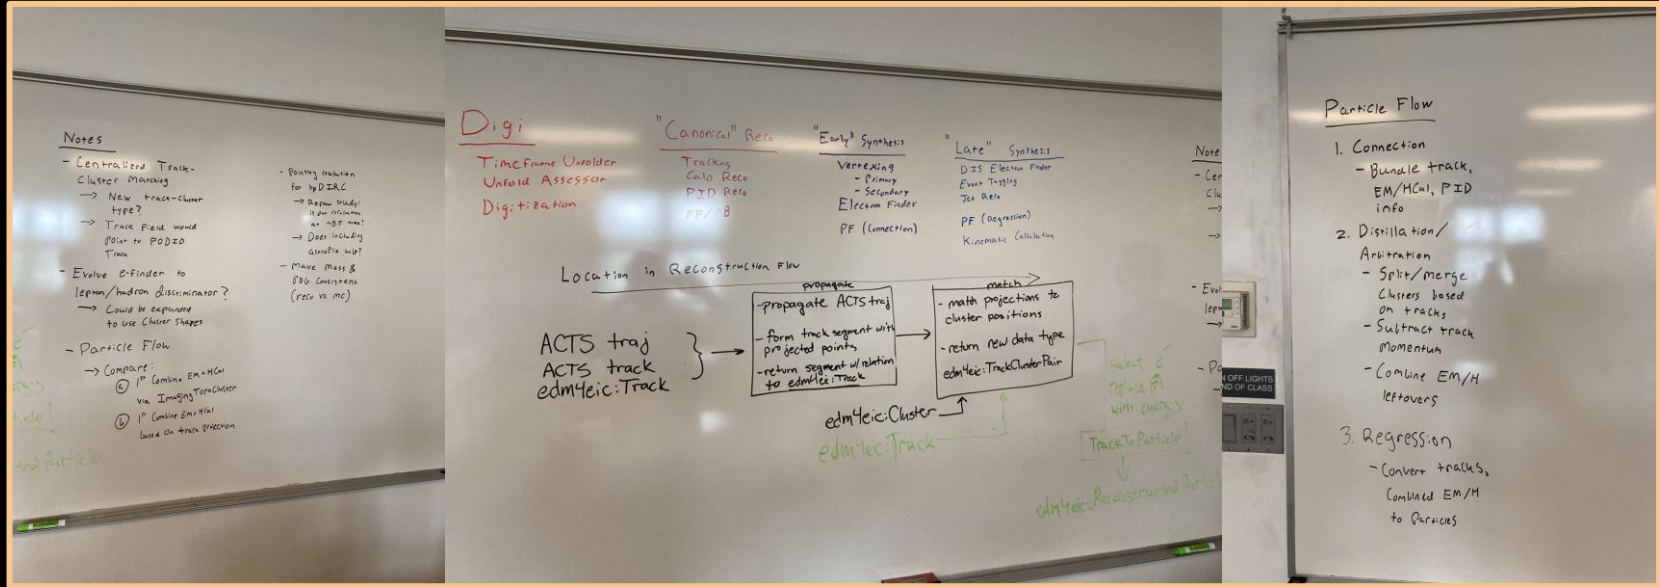 Notes
- Centralized Track-
Cluster Matching
→ New track-cluster
type?
→ Track field would
point to PODIO
Track
- Evolve e-finder to
lepton/hadron discriminator?
→ Could be expanded
to use Cluster Shapes
- Particle Flow
→ Compare:
ⓐ 1st Combine EM+HCal
via ImagingTopoCluster
ⓑ 1st Combine EM+HCal
based on track projection
for hpDIRC
→ Does including
- Make Mass &
PDG Consistent
(reco vs mc)
Digi
Timeframe Unfolder
Unfold Assessor
Digitization
"Canonical" Reco
Tracking
Calo Reco
PID Reco
"Early" Synthesis
Vertexing
- Primary
- Secondary
Electron Finder
PF (Connection)
"Late" Synthesis
DIS Electron Finder
Event Tagging
Jet Reco
PF (Regression)
Kinematic Calculation
Location in Reconstruction Flow
ACTS traj
ACTS track
edm4eic:Track
propagate
- propagate ACTS traj
- form track segment with
projected points
- return segment w/relation
to edm4eic:Track
match
- math projections to
cluster positions
- return new data type
edm4eic:TrackClusterPair
edm4eic:Cluster
edm4eic:Track
select e-
replace |p|
with energy
TrackToParticle
edm4eic:ReconstructedParticle
Note
OFF LIGHTS
END OF CLASS
Particle Flow
1. Connection
- Bundle track,
EM/HCal, PID
info
2. Distillation/
Arbitration
- Split/merge
Clusters based
on tracks
- Subtract track
momentum
- Combine EM/H
leftovers
3. Regression
- Convert tracks,
Combined EM/H
to Particles